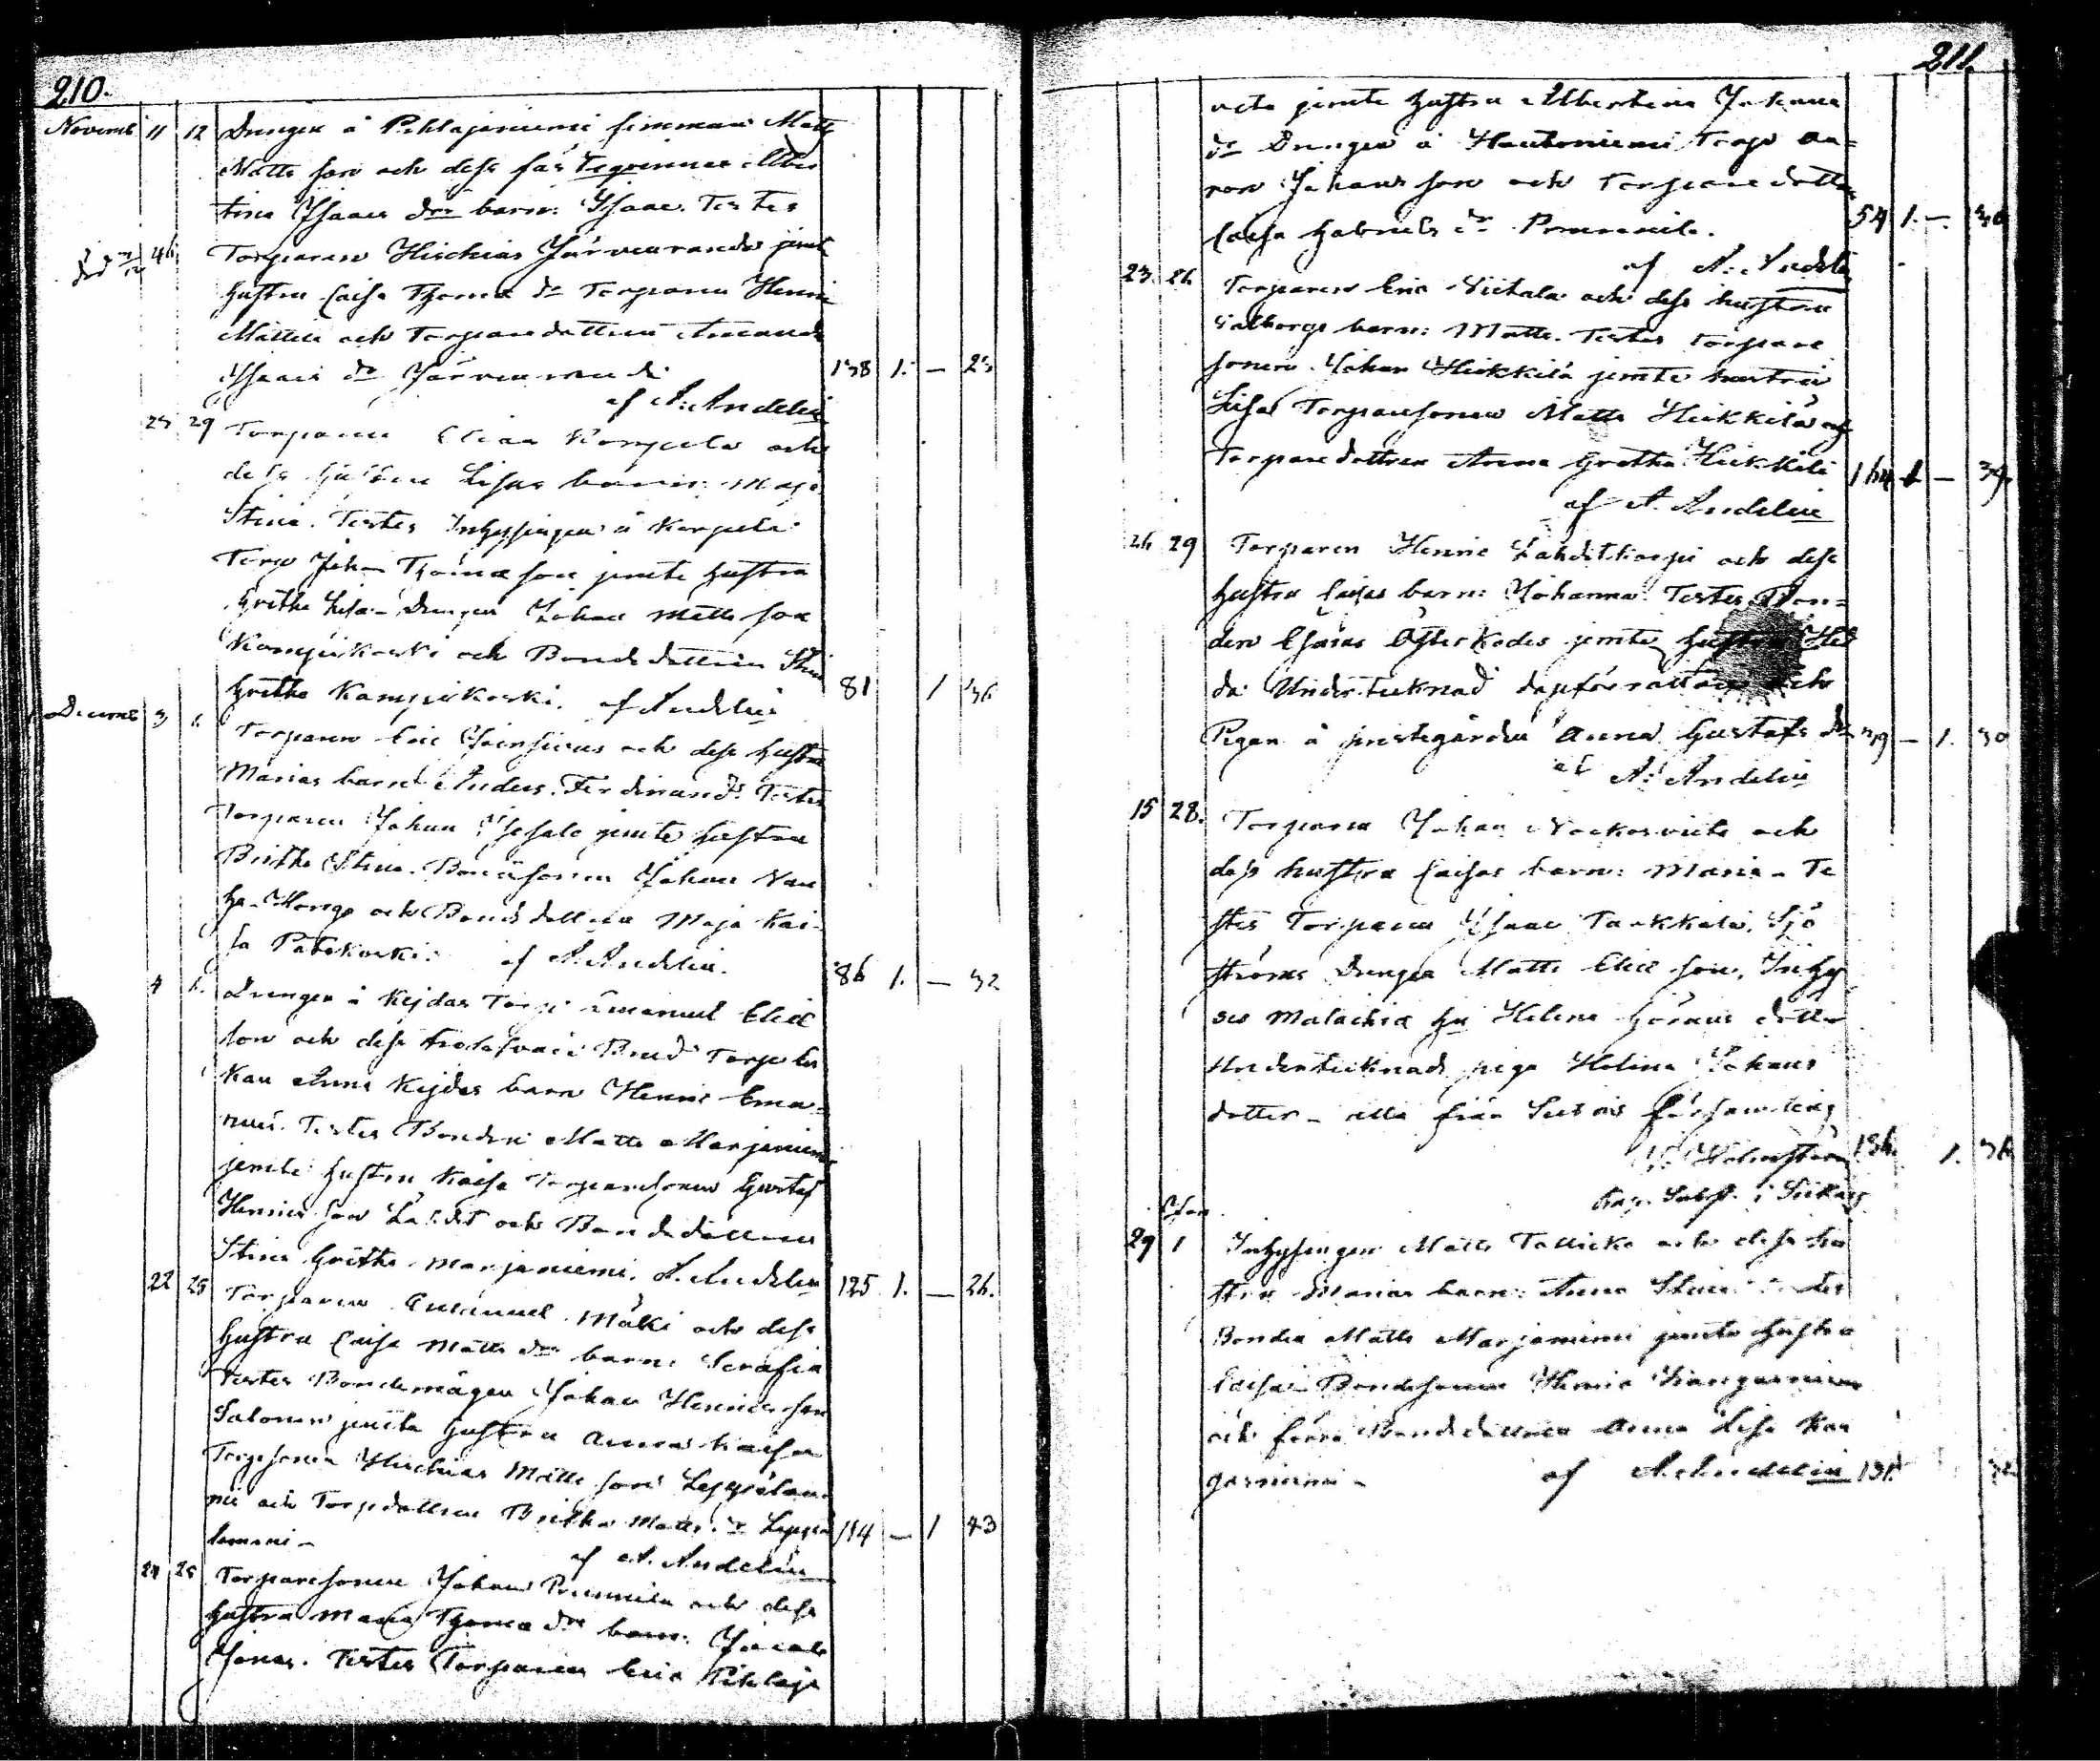 210.
Novemb 11 12 Drengen å Pihlajaniemi hemman Matts
Matts son och dess fästeqvinnas Alber
tina Isaacs dr barn: Isaac. Testes
död 46. Torparen Hischias Järvenranda jemte
hustru Caisa Thomæ dr Torparen Henric
Mattila och Torparedottren Amanda
Isaacs dr Järvenranda 138 1. — 23
af A: Andelin
25 29 Torparen Elias Korpela och
dess hustru Lisas barn: Maja
Stina. Testes Inhysingen å Korpela
Torp Johan Thomæ son jemte hustru
Gretha Lisa - Drengen Johan Matts son
Kampikoski och Bondedottren Stina
Gretha Kampikoski. af Andelin 81 1 36
Decemb 3 6. Torparen Eric och dess hustru
Marias barn Anders Ferdinand. Testes
Torparen Johan jemte hustru
Britha Stina. Bondesonen Johan Van
ha-Honga och Bondedottren Maja Kai-
sa Patokoski. af A. Andelin. 86 1. — 32
4 6. Drengen å Kejdas Torp Emanuel Eliæ
son och dess trolofvade Brud Torpe
Anna Kejdas barn Henric Ema-
nuel. Testes Bonden Matts Marjaniemi
jemte hustru Kaisa Torparesonen Gustaf
Henrics son Lahdet och Bondedottren
Stina Gretha Marjaniemi. A. Andelin 125 1. — 26.
22 25 Torparen Emanuel Mäki och dess
hustru Caisa Matts dr barn: Serafia
Testes Bondemågen Johan Henrics son
Salonen jemte hustru Anna Kaisa
Torpsonen Hischias Matts son Leppälam-
mi och Torpdottren Britha Matts dr Leppä
lammi - 114 — 1 43
af A. Andelin
24 25 Torparesonen Johan Prunnila och dess
hustru Maria Thomæ dr barn: Jacob
Jonas. Testes Torparen Eric Pihlaja

211.
jemte hustru Albertina Johans
dr Drengen å Hautoniemi Torp Aa-
ron Johans son och Torparedottren
Caisa Gabriels dr Prunnila. 54 1. — 36
af A: Andelin
23. 26. Torparen Eric Viitala och dess hustru
Valborgs barn: Matts. Testes Torpare
sonen Johan Heikkilä jemte hustru
Lisa Torparesonen Matts Heikkilä och
Torparedottren Anna Gretha Heikkilä 164 1 — 39.
af A. Andelin
26 29 Torparen Henric Lahdetkorpi och dess
hustru Caisas barn: Johanna. Testes Bon-
den Esaias Österkodes jemte hustru Hed
da Undertecknad dopförrättare och
Pigan å prestegården Anna Gustafs dr 39 — 1. 30
af A: Andelin
15 28. Torparen Johan och
dess hustru Caisas barn: Maria - Te
stes Torparen Isaac Taekkala, Sjö
ströms Drengen Matts Eliæ son, Inhy
ses Malachia hu Helena Görans dotter
Undertecknads piga Helena Johans
dotter - alla från Siikais församling
Holmström 136. 1. 36
Cap. Subst. i Siikais
29 1 Inhysingen Matts Tallicka och dess hu
stru Marias barn: Anna Stina Testes
Bonden Matts Marjaniemi jemte hustru
Caisa - Bondesonen Henric Kangasniemi
och förra Bondedottren Anna Lisa Kan
gasniemi - af A. Andelin 131